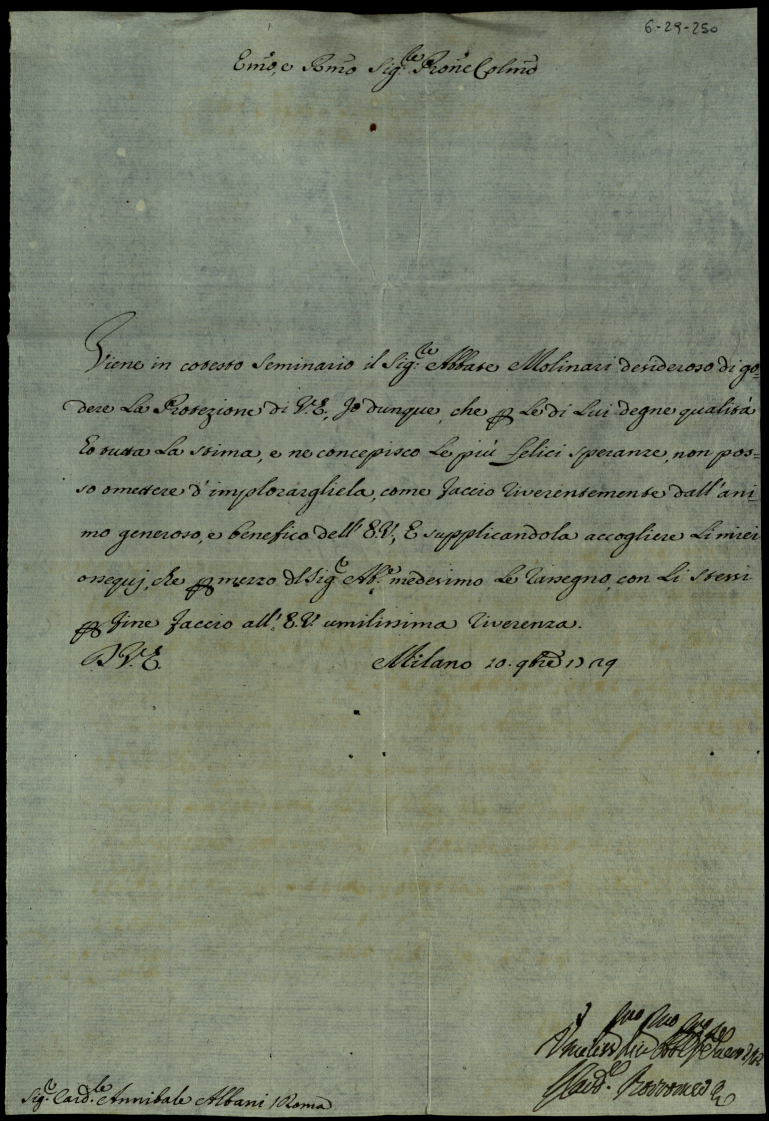 6-29-250
Emo, e Rmo Sig.re Prone Colmo
Viene in cotesto Seminario il Sig.re Abbate Molinari desideroso di go=
dere La Protezione di V.E., Jo dunque, che p Le di Lui degne qualità
ho tutta La stima, e ne concepisco Le più felici speranze, non pos=
so omettere d'implorargliela, come faccio riverentemente dall'ani=
mo generoso, e benefico dell'E.V., E supplicandola accogliere Li miei
ossequj, che p mezzo dl Sig.r Ab.e medesimo Le rassegno, con Li stessi
p fine faccio all'E.V. umilissima riverenza.
D V.E. Milano 20. 9bre 1729
Card.le Borromeo
Sig.r Card.le Annibale Albani / Roma